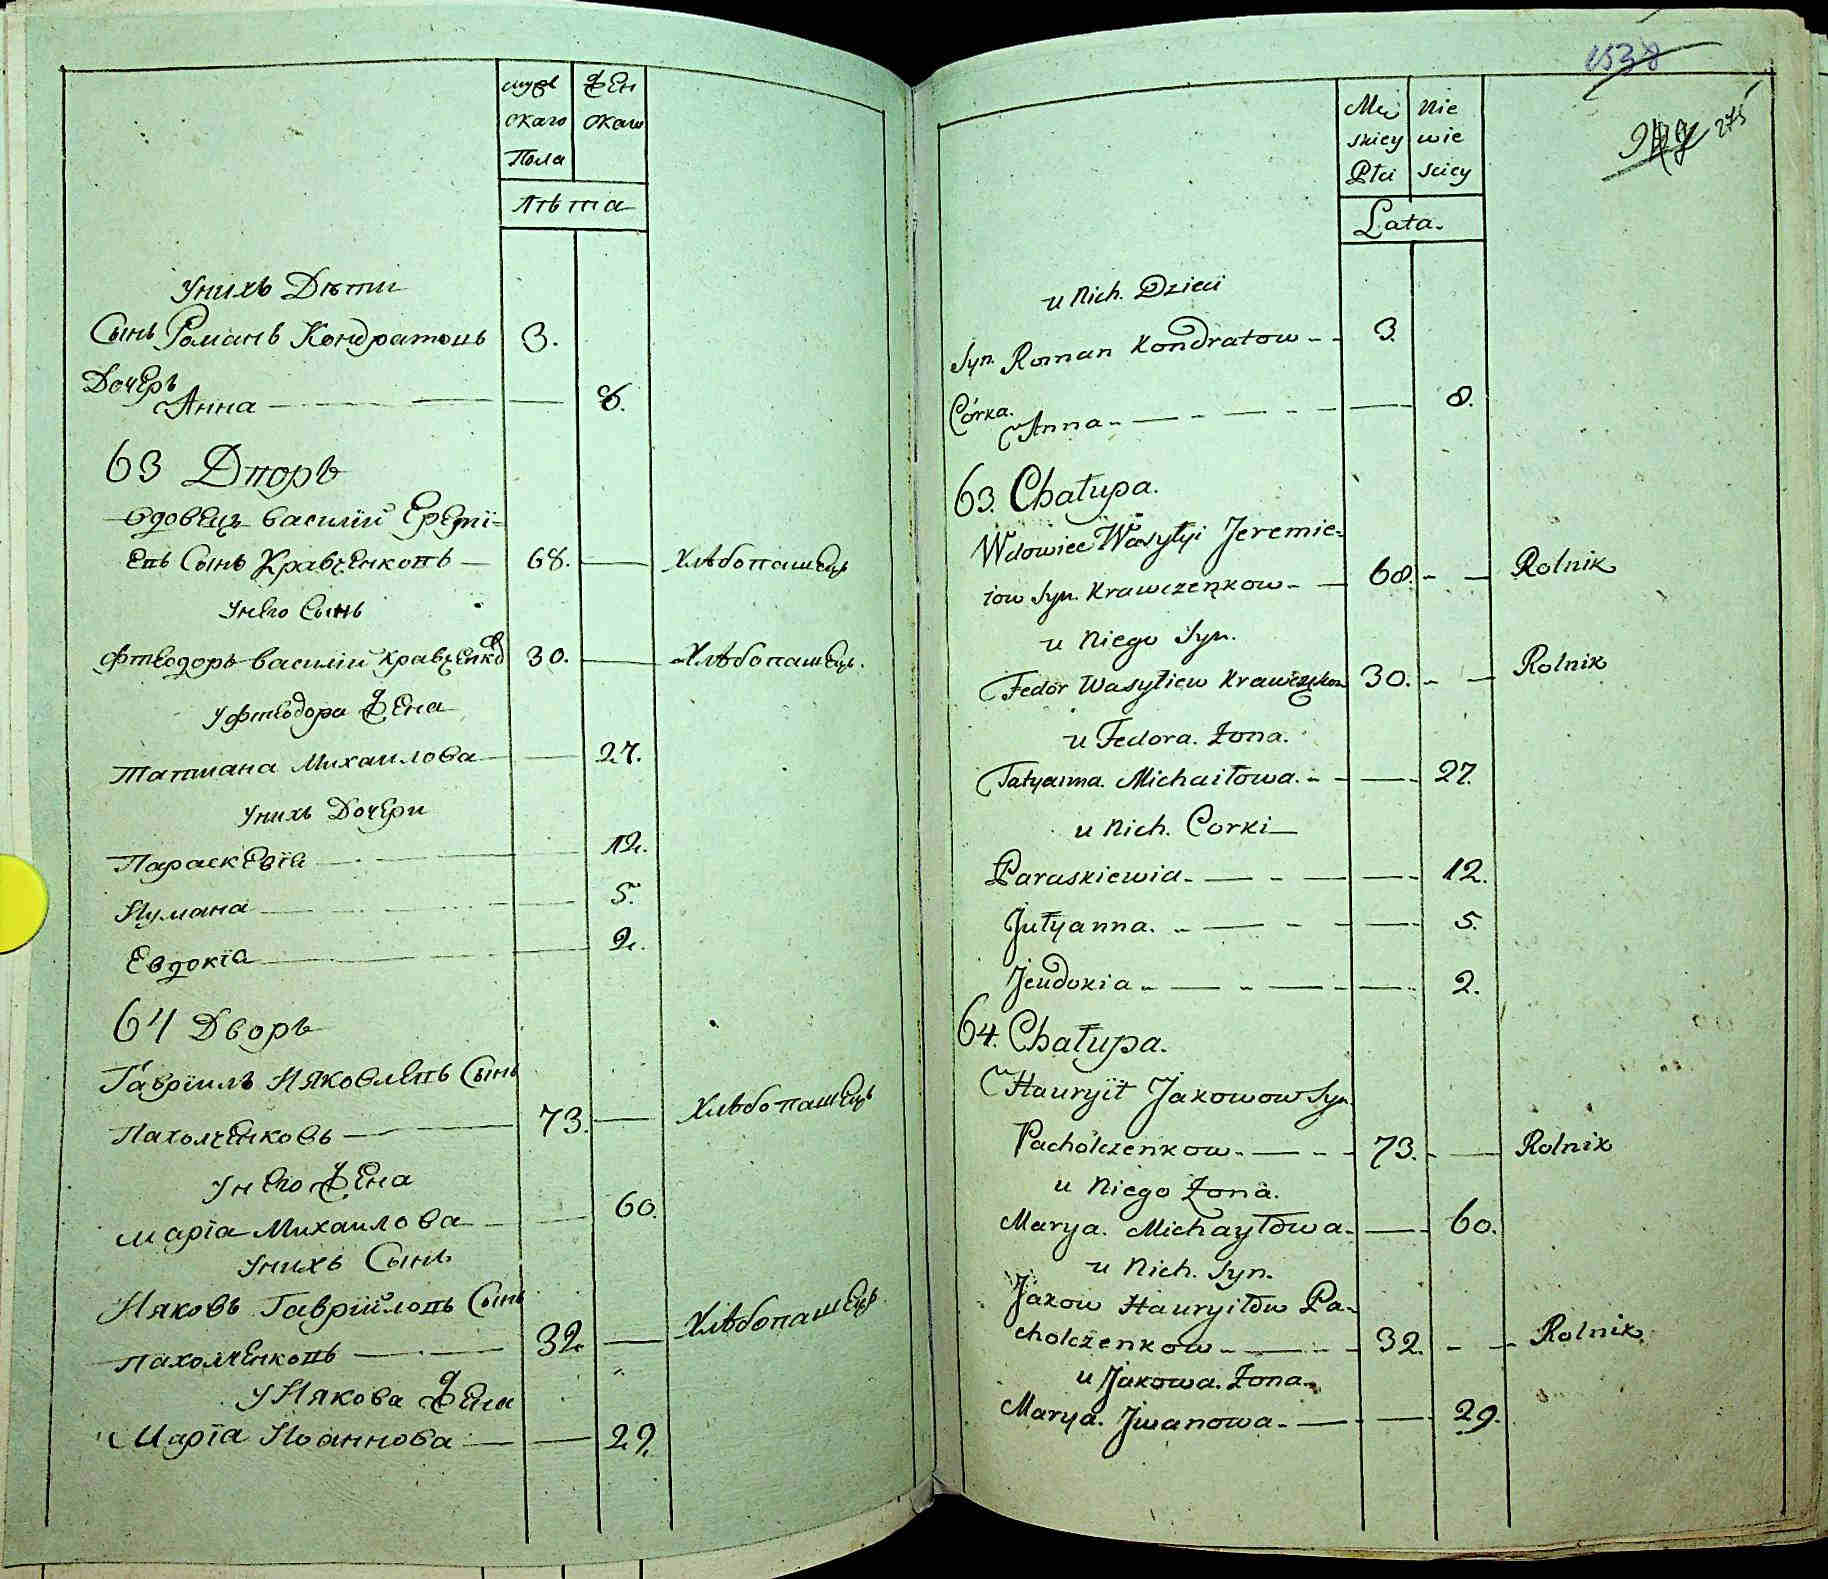 мужъ
скаго
Пола
жен
скаго
лѣта
Унихъ Дѣти
Сынъ Романъ Кондратовъ 3.
Дочерь
Анна 8.
63 Дворъ
Вдовецъ василій Еремі-
евъ Сынъ Кравченковъ 68. Хлѣбопашецъ
Унего Сынъ
Фтеодоръ василіи Кравченков 30. Хлѣбопашецъ.
Уфтеодора Жена
Татиана Михаилова 27.
Унихъ Дочери
Параскевіа 12.
Иулиана 5.
Евдокіа 2.
64 Дворъ
Гавріилъ Иаковлевъ Сынъ
Пахолченковъ 73. Хлѣбопашецъ
Унего Жена
Маріа Михаилова 60.
Унихъ Сынъ
Иаковъ Гавріиловъ Сынъ
Пахолченковъ 32. Хлѣбопашецъ
У Иакова Жена
Маріа Иоаннова 29.
1538
275
Mę
skiey
Płci
Nie
wie
sciey
Lata.
u Nich. Dzieci
Syn. Roman Kondratow 3.
Córka.
Anna 8.
63. Chałupa.
Wdowiec Wasyłyi Jeremie-
iow Syn. Krawczenkow 68. Rolnik
u Niego Syn.
Fedor Wasyłiew Krawczenkow 30. Rolnik
u Fedora. Żona.
Tatyanna. Michaiłowa. 27.
u Nich. Corki
Paraskiewia 12.
Jułyanna. 5.
Jeudokia 2.
64. Chałupa.
Hauryił Jakowow Syn.
Pacholczenkow 73. Rolnik
u Niego Żona.
Marya. Michayłowa. 60.
u Nich. Syn.
Jakow Hauryiłow Pa-
cholczenkow 32. Rolnik.
u Jakowa. Żona.
Marya. Jwanowa 29.